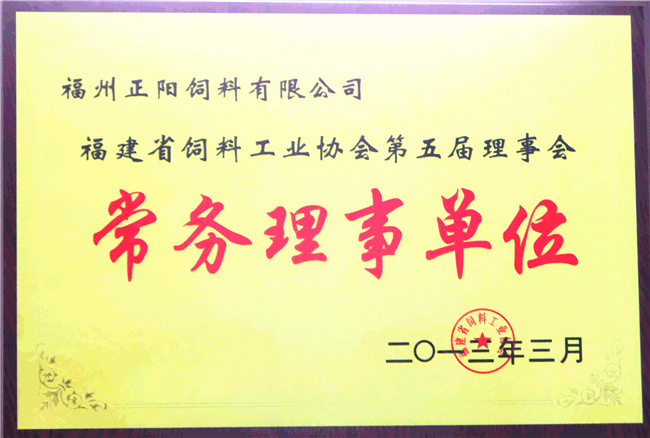 福州正阳饲料有限公司
福建省饲料工业协会第五届理事会
常务理事单位
福建省饲料工业协会
二〇一三年三月